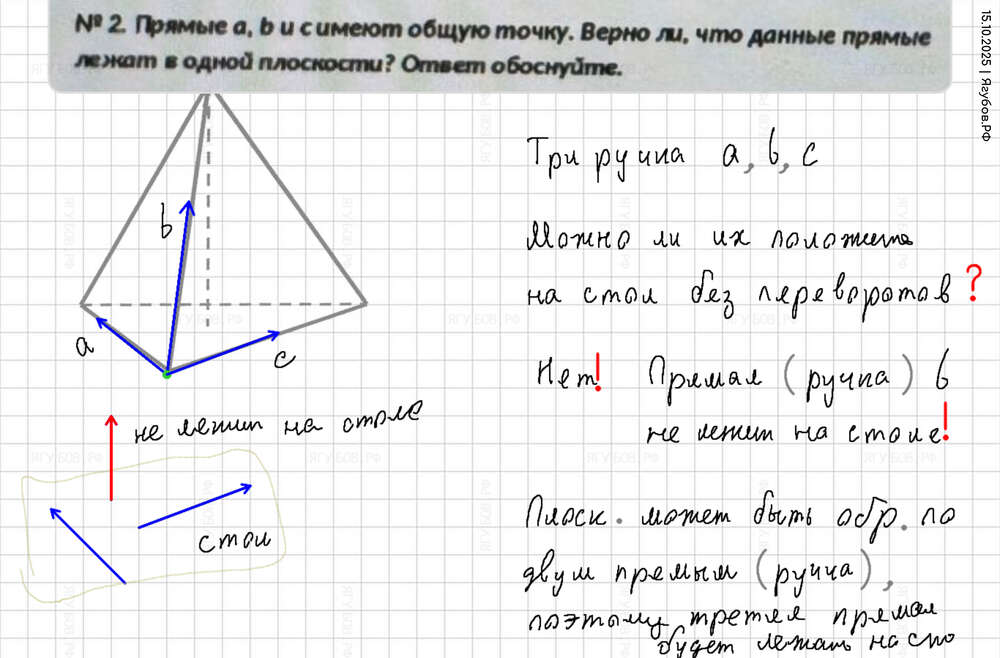 № 2. Прямые a, b и c имеют общую точку. Верно ли, что данные прямые
лежат в одной плоскости? Ответ обоснуйте.
15.10.2025 | Ягубов.РФ
Три ручка a, b, c
Можно ли их положить
на стол без переворотов ?
Нет! Прямая (ручка) b
не лежит на столе!
b
a
c
не лежит на столе
стол
Плоск. может быть обр. по
двум прямым (ручка),
поэтому третья прямая
будет лежать на сто
ЯГУБОВ.РФ
ЯГУБОВ.РФ
ЯГУБОВ.РФ
ЯГУБОВ.РФ